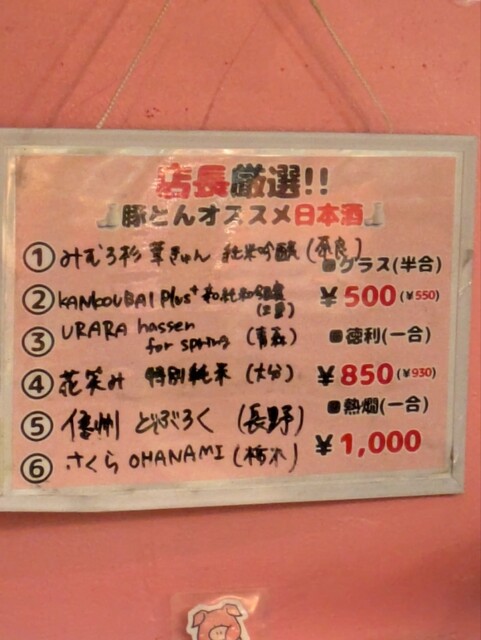 店長厳選!!
豚とんオススメ日本酒
① みむろ杉 華きゅん 純米吟醸 (奈良)
■グラス(半合)
② KANKOUBAI Plus+ 純米吟醸 (三重)
¥500(¥550)
③ URARA hassen for spring (青森)
■徳利(一合)
④ 花笑み 特別純米 (大分)
¥850(¥930)
■熱燗(一合)
⑤ 信州 どぶろく (長野)
¥1,000
⑥ さくら OHANAMI (栃木)